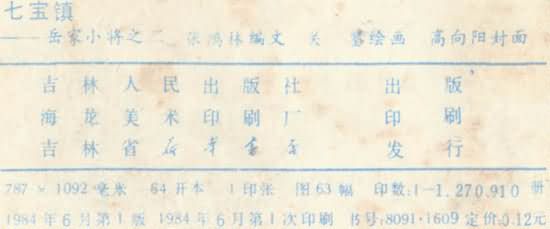 七宝镇
——岳家小将之二 张鸿林编文 关 鉴绘画 高向阳封面
吉林人民出版社 出版
海龙美术印刷厂 印刷
吉林省新华书店 发行
787×1092毫米 64开本 1印张 图63幅 印数:1—1,270,910册
1984年6月第1版 1984年6月第1次印刷 书号:8091·1609 定价0.12元